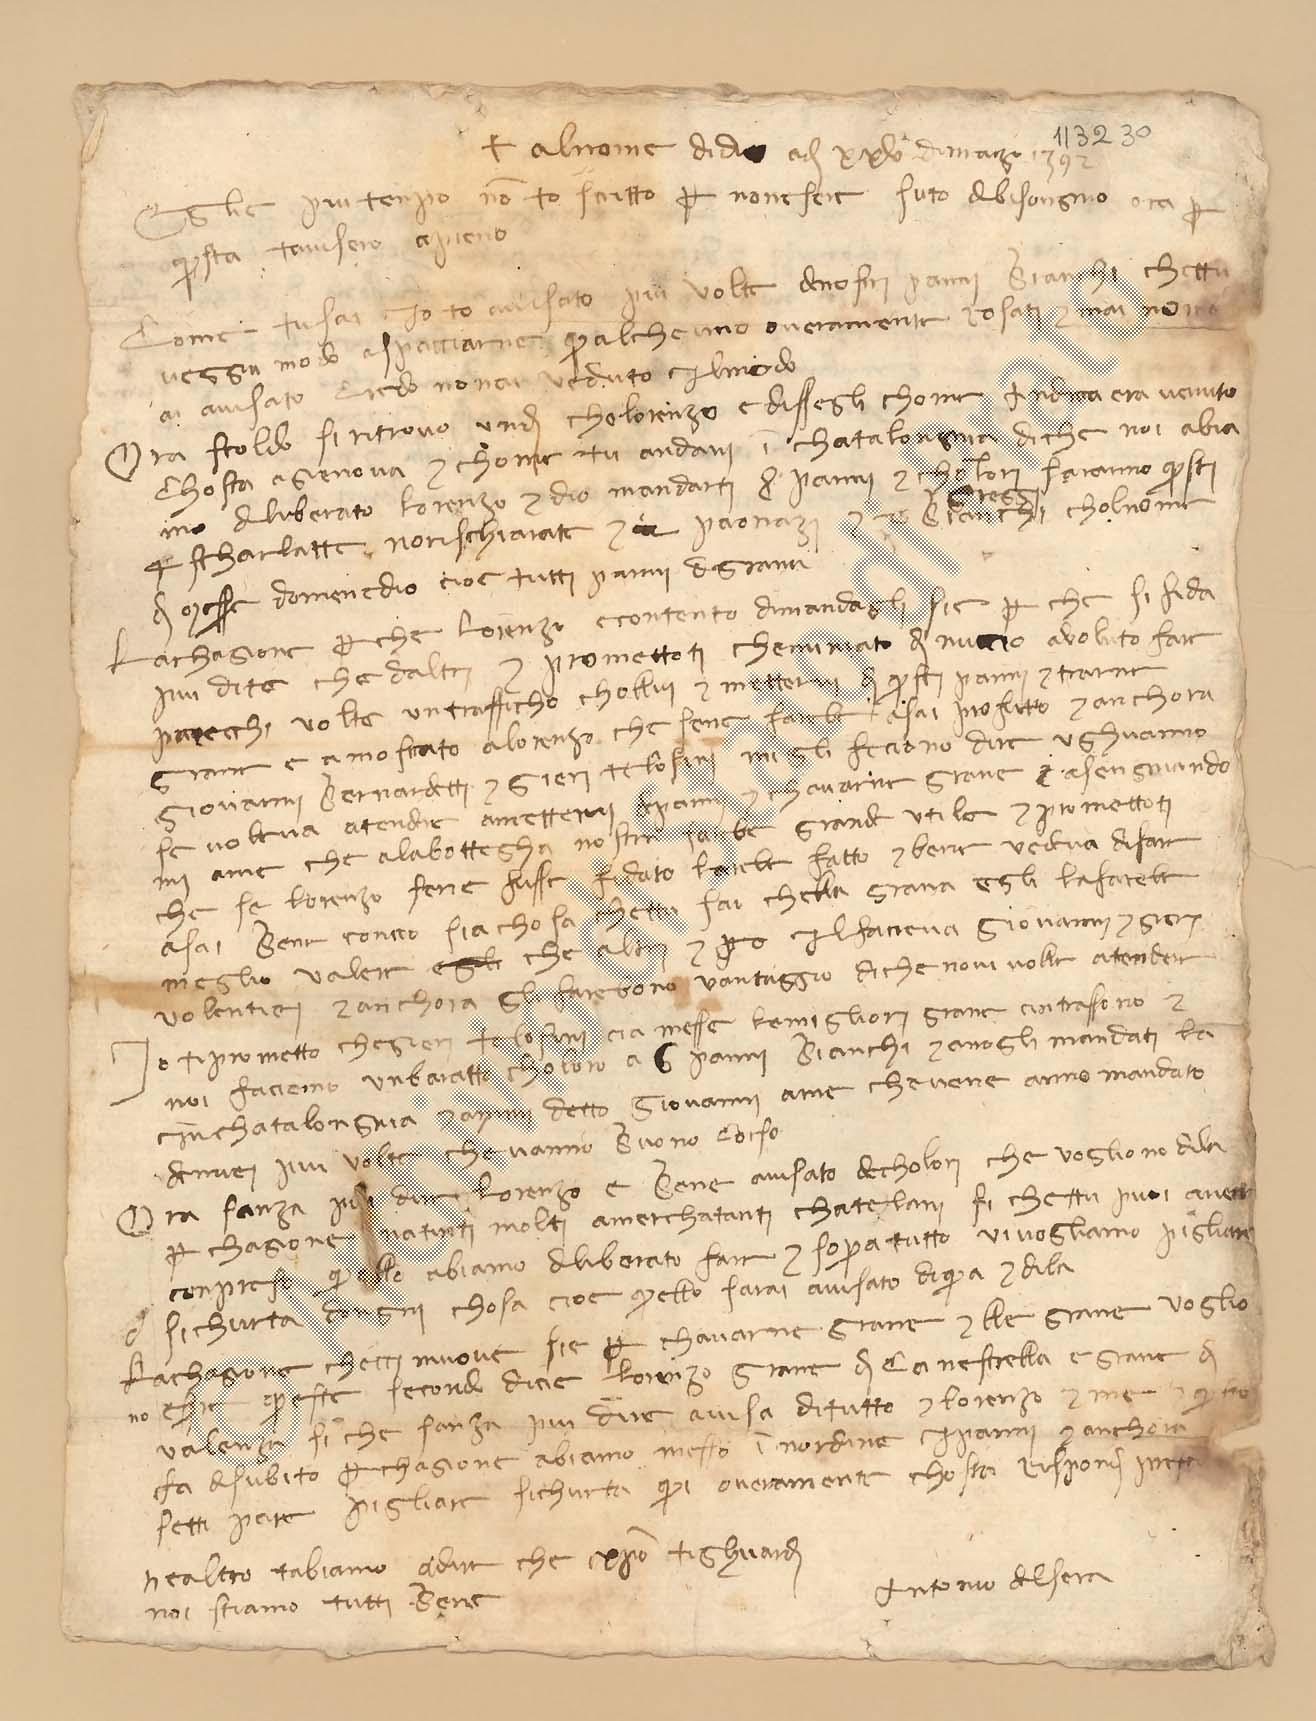 1132 30
+ al nome di dio adì xxv di marzo 1392
Egli e piu tenpo nō to scritto p nonesere suto dbisongno ora p
qsta taviserò apieno
Come tu sai io to avisato piu volte denostri panni bianchi chettu
vegga modo aspacciarne qalcheuno overamente rosati e mai
ai avisato credo nonai veduto ilmodo
Ora stoldo si ritrovo cholorenzo edissegli chome andrea era venuto
chosta agienova e chome tu andavi ī chatalongna diche noi abia
mo dliberato lorenzo e dio mandarti panni e cholori saranno qsti
scharlatte rischiarate e paonazi e bianchi cholnome
di messe domenedio cioe tutti panni dgrana
Lachagione pche lorenzo econtento dimandagli sie pche si fida
piu dite che daltri e promettoti di nuccio avoluto fare
parecchi volte untrafficho chollui e mettervi di qsti panni e trarne
grane e amostrato alorenzo che sene farebe asai profitto e anchora
giovanni bernardetti e gieri telosini mi gli feciono dire ughuanno
se voleva atendre amettervi panni e chavarne grane asengnando
mi ame che alabottegha nostra sarebe grande utile e promettoti
che se lorenzo sene fusse fidato larebe fatto e bene vedeva difare
asai bene concio sia chosa chettu sai chella grana egli lafarebe
meglio valere egli che altri e po ilfacieva giovanni e gieri
volentieri e anchora gli farebono vantaggio diche nonvolle atendere
Io tiprometto chegieri telosini cia messe lemigliori grane cintrassono e
noi faciemo unbaratto choloro a 6 panni bianchi e anogli mandati la
inchatalongnia e detto giovanni ame chevene anno mandato
piu volte chevanno buono corso
Ora sanza piu dire lorenzo e bene avisato decholori che vogliono dila
p chagione natinti molti amerchatanti chatelani si chettu puoi avere
conpreso qllo abiamo dliberato fare e sopratutto vivogliamo pigliare
sichurta dongni chosa cioe qello sarai avisato diqua e dila
Lachagione chetti muove sie p chavarne grane e lle grane voglio
no esere qeste secondo dicie lorenzo grane di Cinestrella e grane di
valenza si che sanza piu dire avisa ditutto e lorenzo e me e qsto
fa dsubito pchagione abiamo messo ī nordine ipanni e anchora
setti pare pigliare sichurta qi overamente chosta rispondi
nealtro tabiamo adire che xpo tighuardi
noi stiamo tutti bene
Antonio dlsera